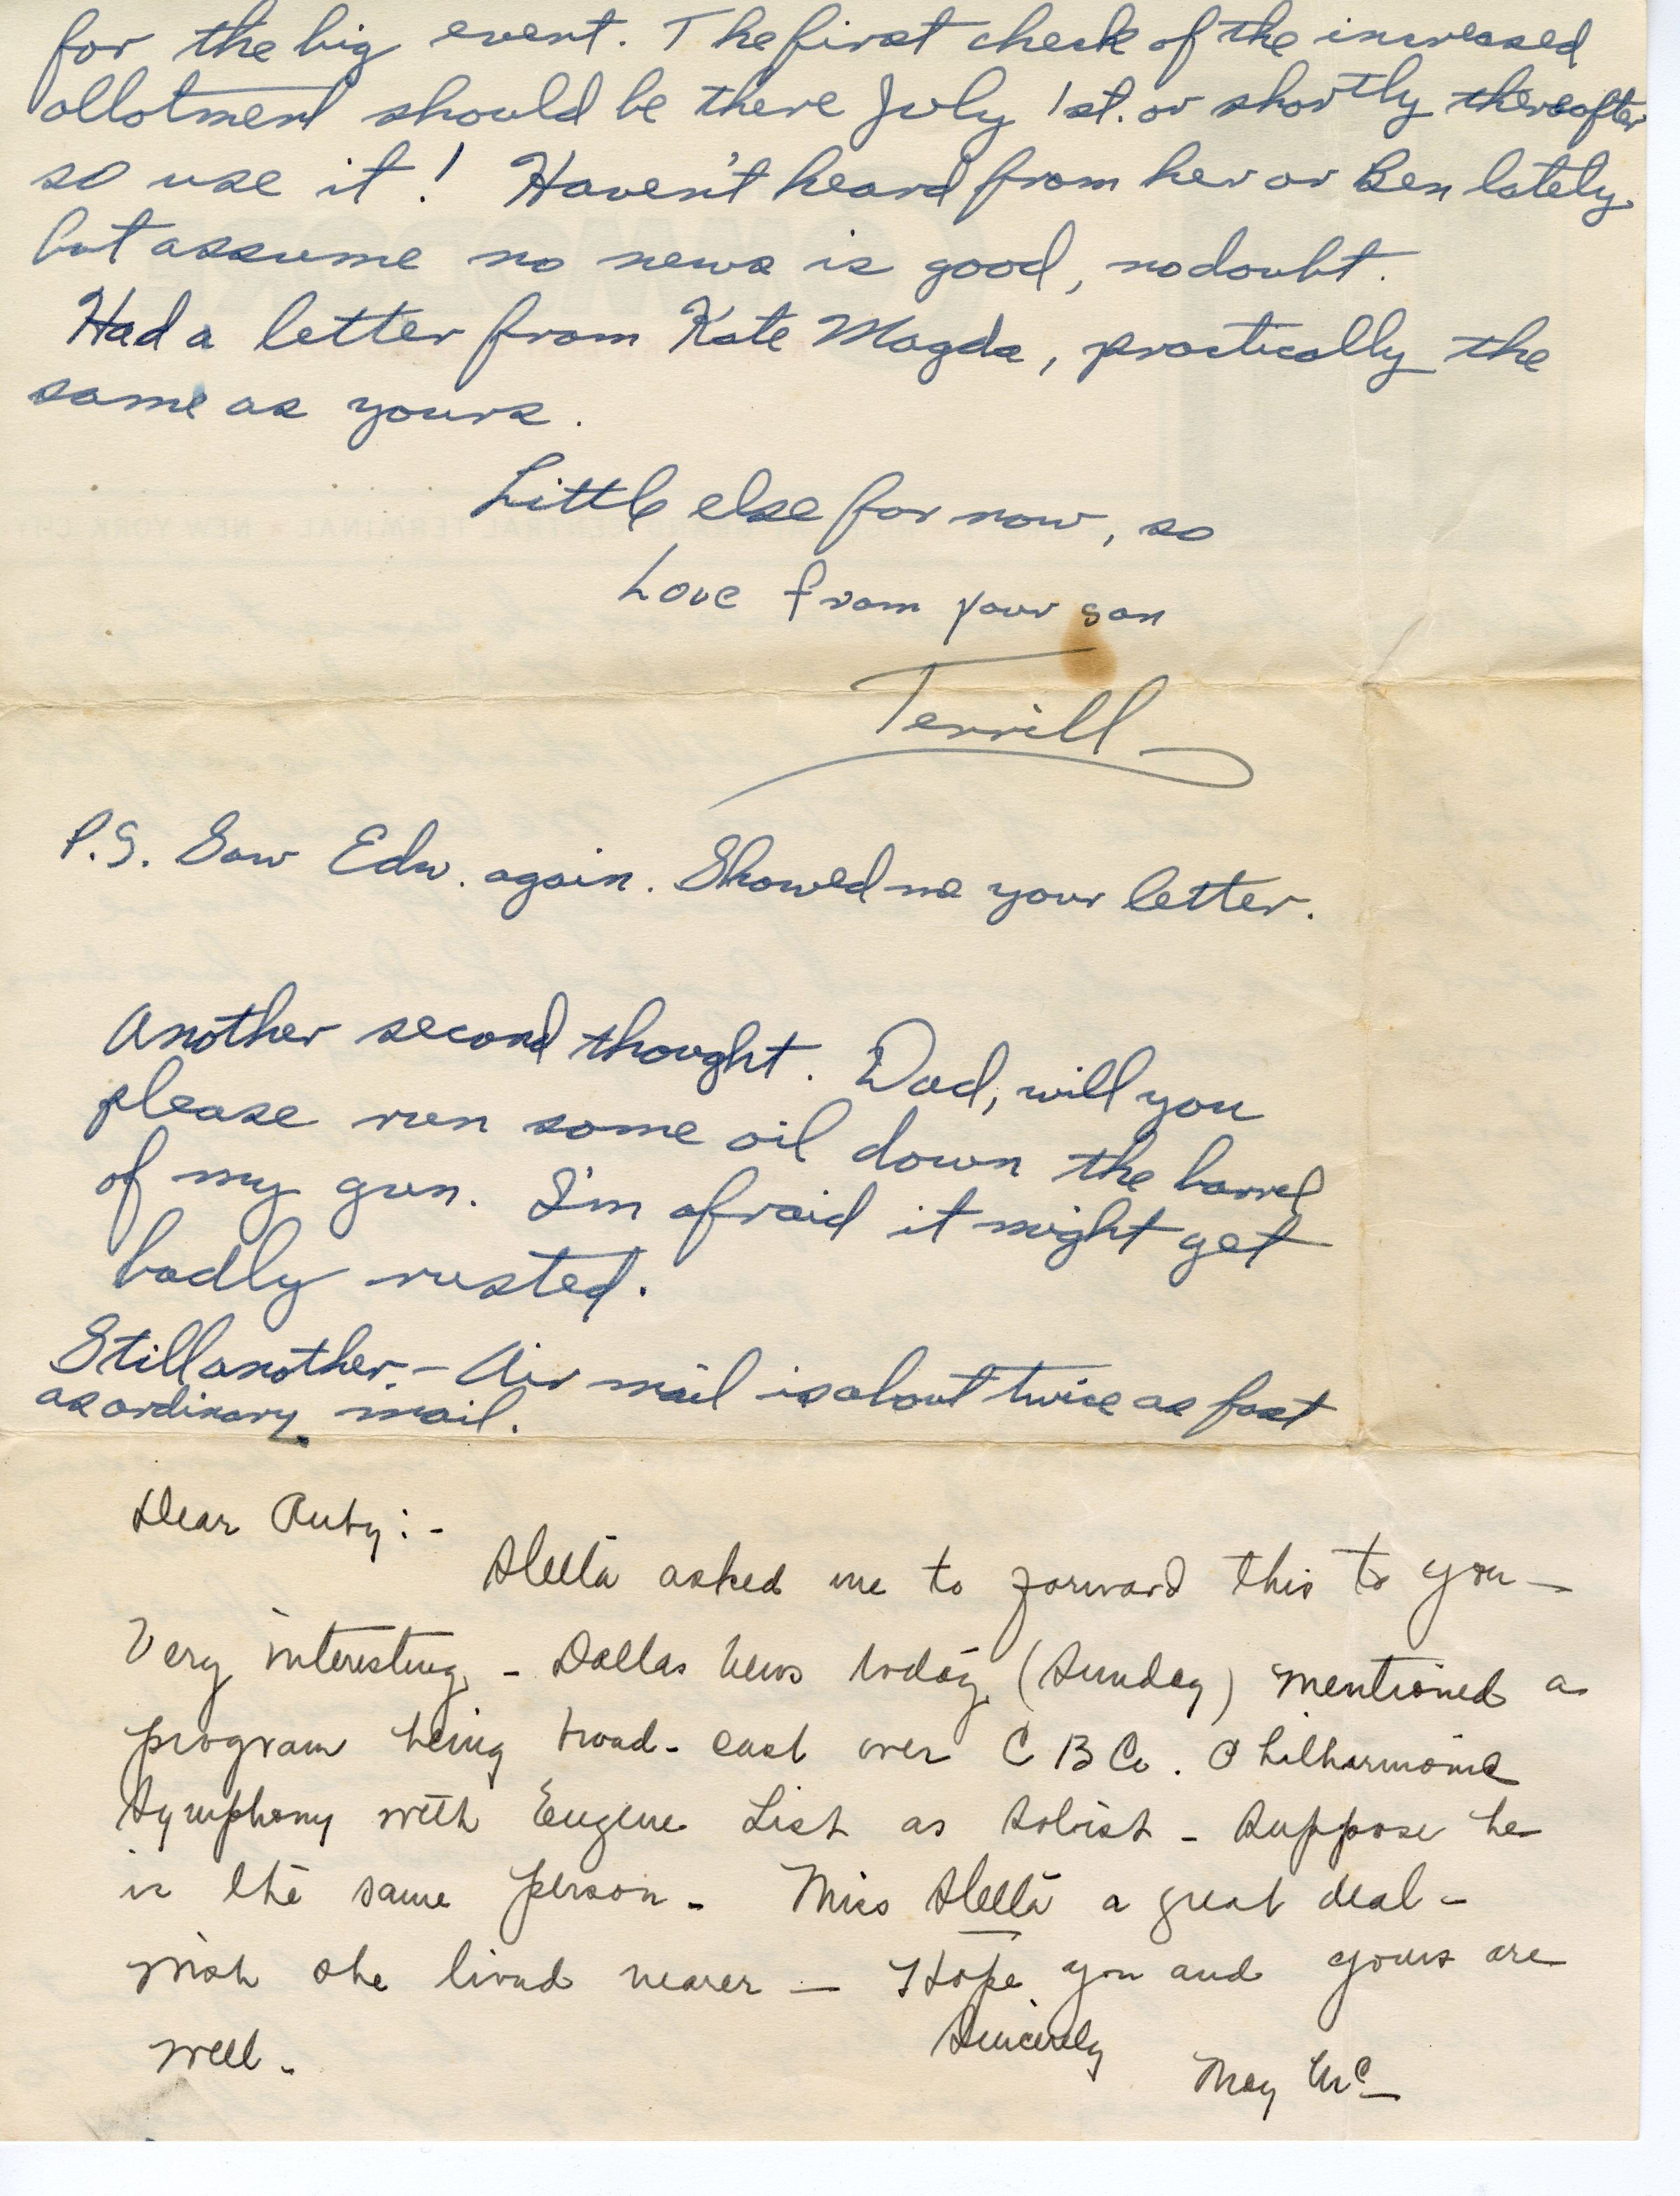 for the big event. The first check of the increased
allotment should be there July 1st. or shortly thereafter
so use it! Haven't heard from her or Ben lately
but assume no news is good, no doubt.
Had a letter from Kate Magda, practically the
same as yours.
Little else for now, so
Love from your son
Terrill
P.S. Saw Edw. again. Showed me your letter.
Another second thought. Dad, will you
please run some oil down the barrel
of my gun. I'm afraid it might get
badly rusted.
Still another. - Air mail is about twice as fast
as ordinary mail.
Dear Ruby: -
Stella asked me to forward this to you -
Very interesting - Dallas News today (Sunday) mentioned a
program being broad-cast over C B Co. Philharmonic
Symphony with Eugene List as soloist - Suppose he
is the same person - Miss Stella a great deal -
wish she lived nearer - Hope you and yours are
well -
Sincerely
May Mc